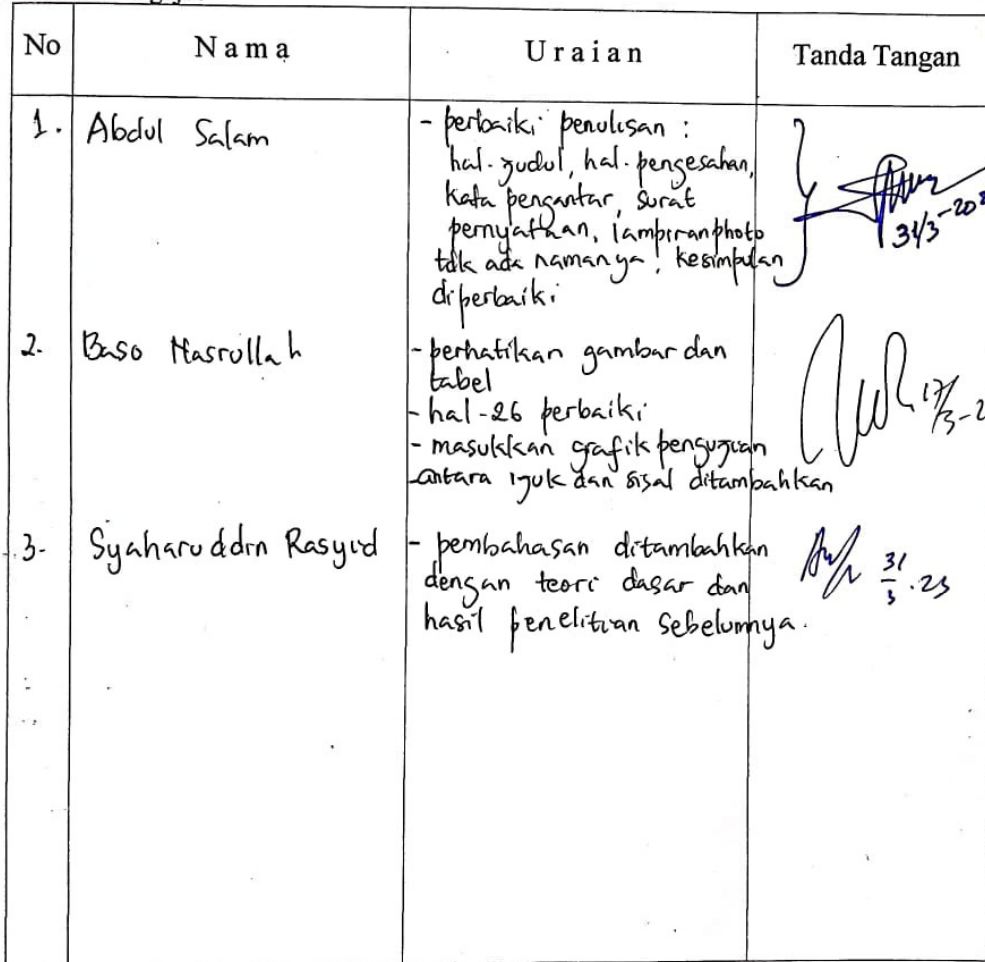 No Nama Uraian Tanda Tangan
1. Abdul Salam - perbaiki penulisan :
hal. judul, hal. pengesahan,
kata pengantar, surat
pernyataan, lampiran photo
tdk ada namanya! kesimpulan
diperbaiki
31/3-202
2. Baso Nasrullah - perhatikan gambar dan
tabel
- hal-26 perbaiki
- masukkan grafik pengujian
antara ijuk dan sisal ditambahkan
17/3-2
3- Syaharuddin Rasyid - pembahasan ditambahkan
dengan teori dasar dan
hasil penelitian sebelumnya.
31/3.23